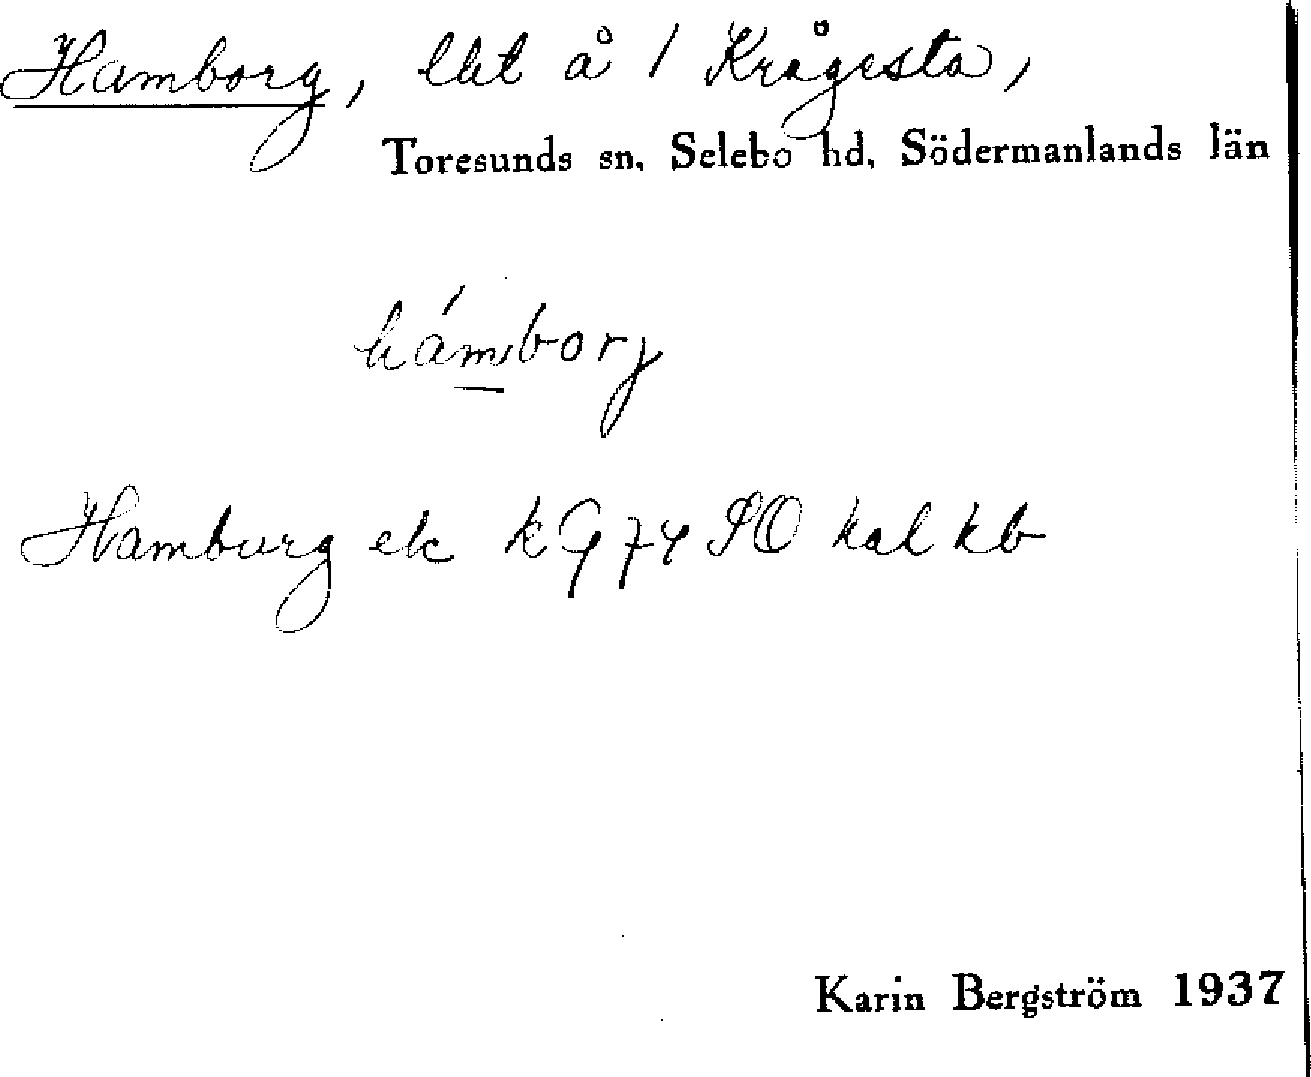 Hamborg, lht å 1 Krågesta,
Toresunds sn, Selebo hd, Södermanlands län
hámborj
Hamburg ek k 974 SO kal kb
Karin Bergström 1937